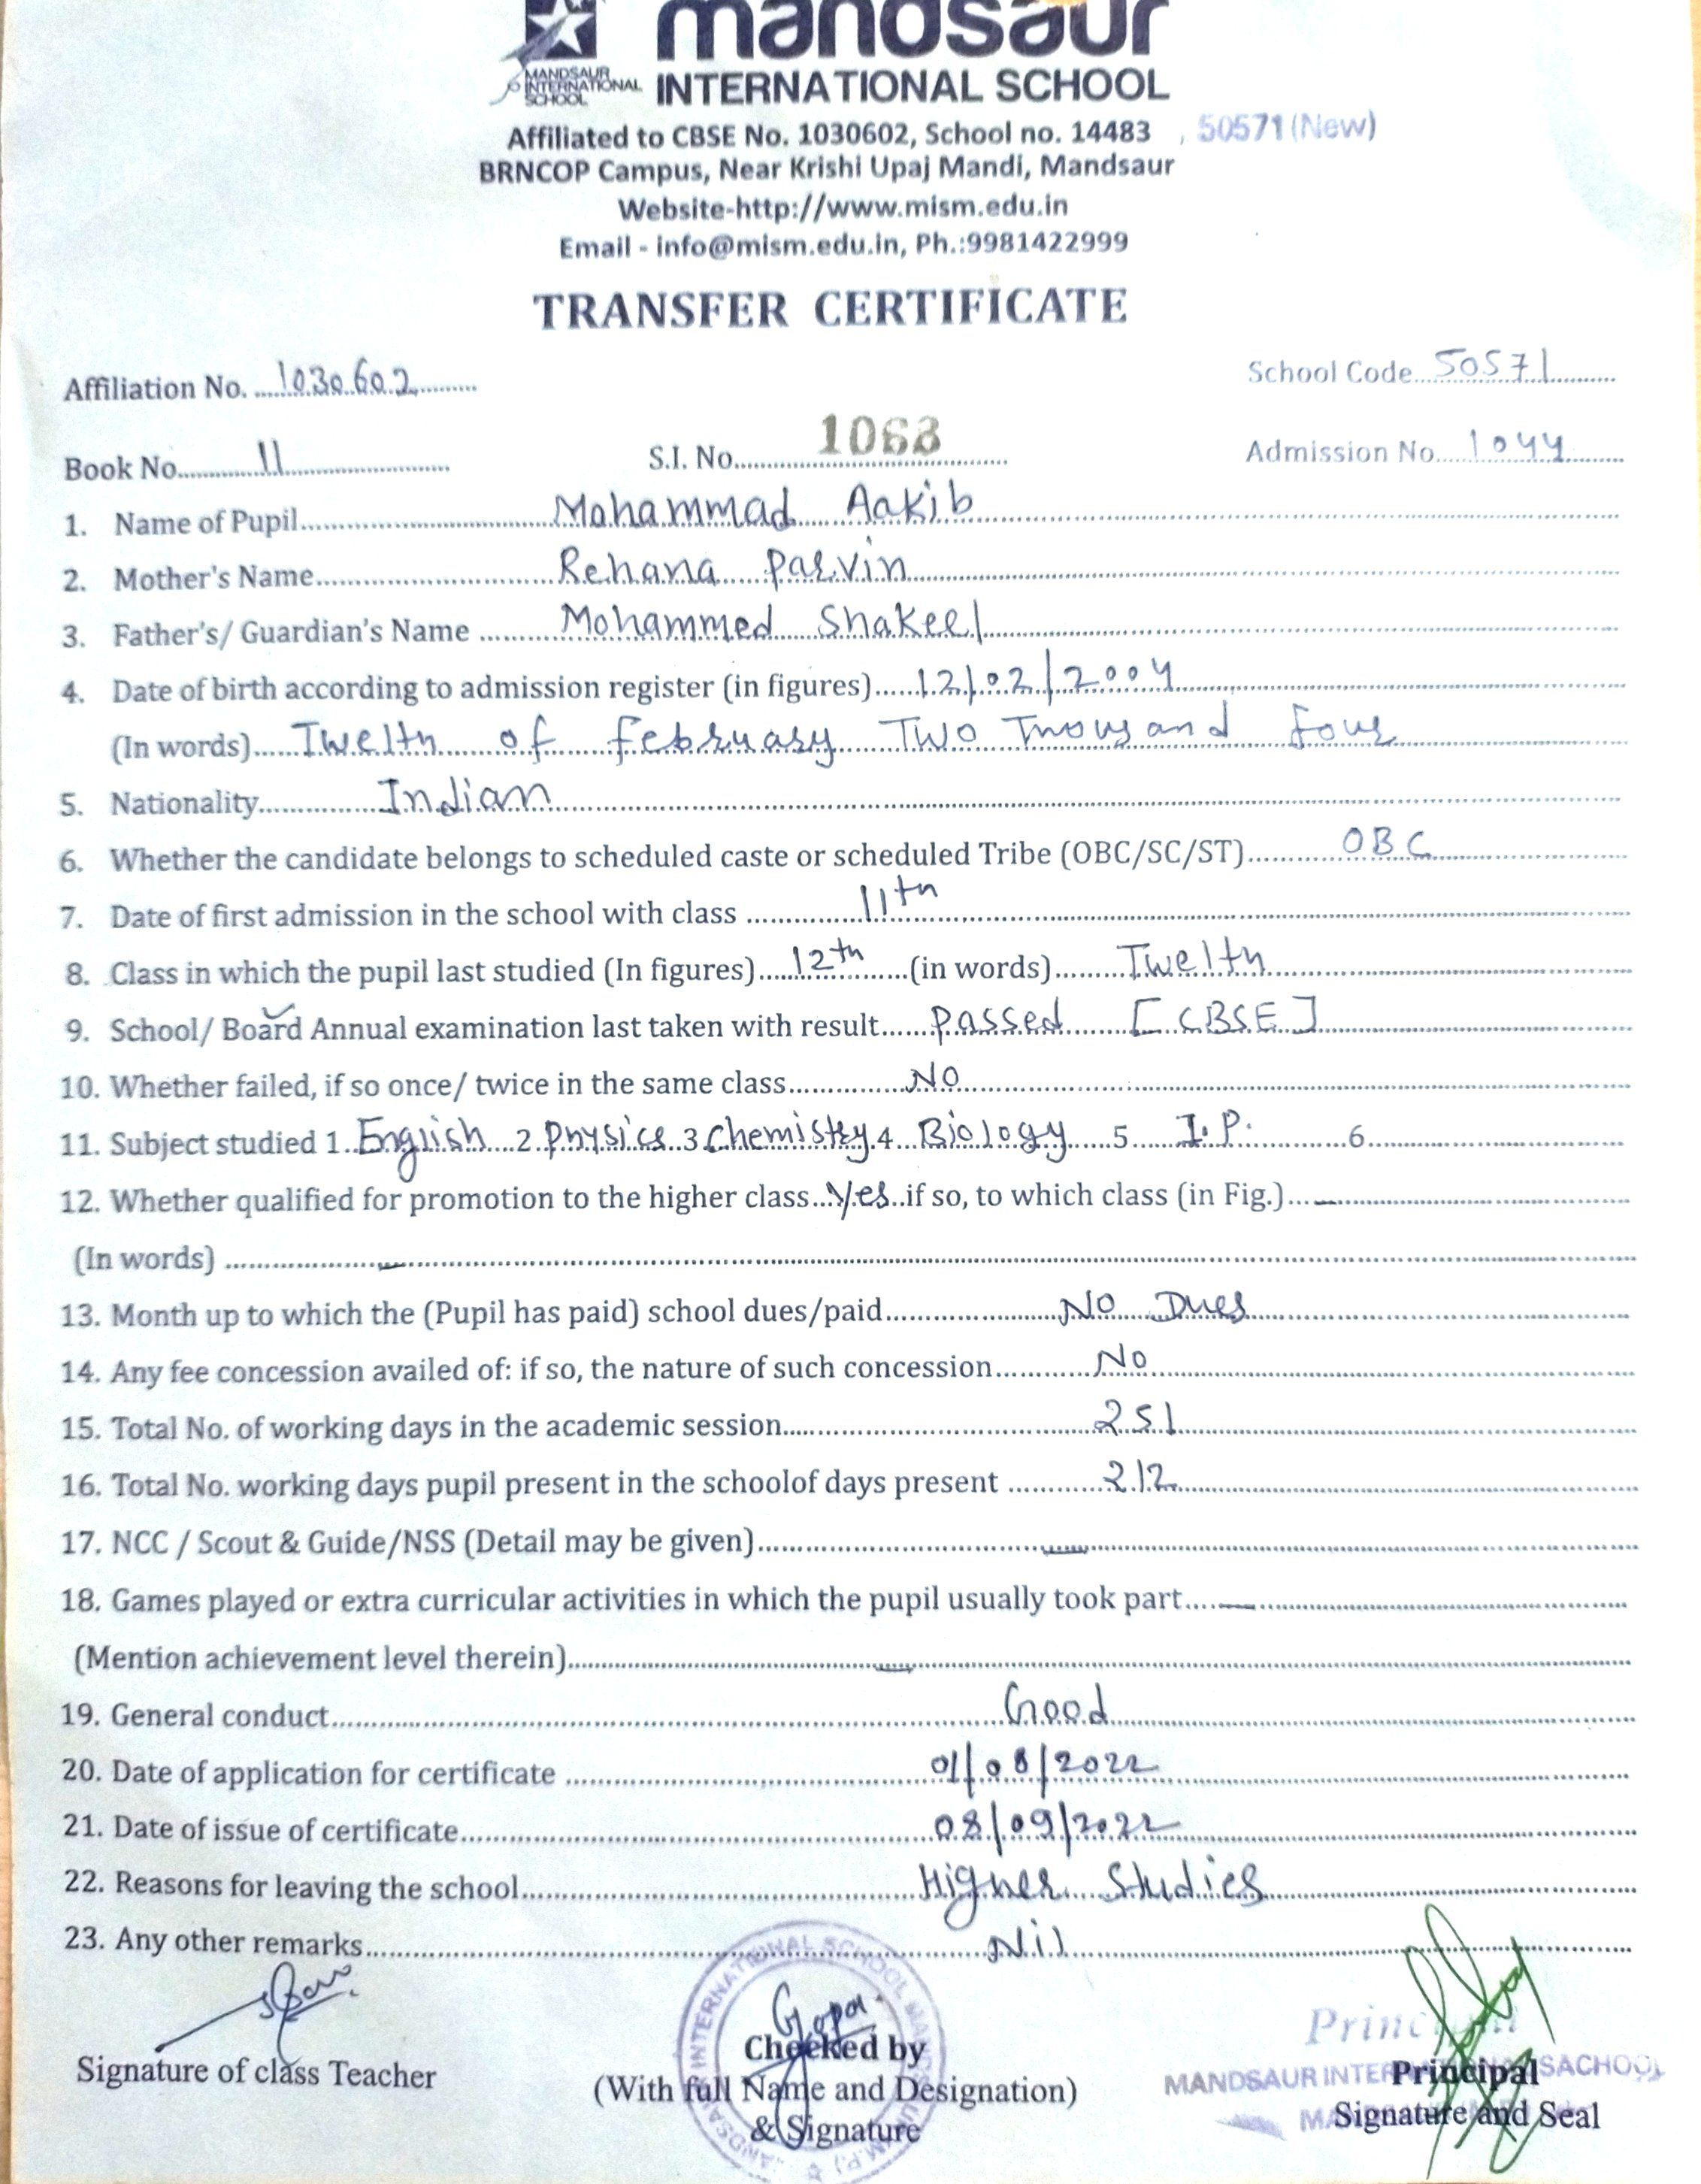 mandsaur
MANDSAUR INTERNATIONAL SCHOOL
INTERNATIONAL SCHOOL
Affiliated to CBSE No. 1030602, School no. 14483 , 50571(New)
BRNCOP Campus, Near Krishi Upaj Mandi, Mandsaur
Website-http://www.mism.edu.in
Email - info@mism.edu.in, Ph.:9981422999
TRANSFER CERTIFICATE
Affiliation No. 1030602 School Code 50571
Book No. 11 S.I. No. 1068 Admission No. 1044
1. Name of Pupil Mohammad Aakib
2. Mother's Name Rehana Parvin
3. Father's/ Guardian's Name Mohammed Shakeel
4. Date of birth according to admission register (in figures) 12/02/2004
(In words) Twelth of February Two Thousand Four
5. Nationality Indian
6. Whether the candidate belongs to scheduled caste or scheduled Tribe (OBC/SC/ST) OBC
7. Date of first admission in the school with class 11th
8. Class in which the pupil last studied (In figures) 12th (in words) Twelth
9. School/ Board Annual examination last taken with result Passed [CBSE]
10. Whether failed, if so once/ twice in the same class NO
11. Subject studied 1 English 2 Physics 3 Chemistry 4 Biology 5 I.P. 6
12. Whether qualified for promotion to the higher class Yes if so, to which class (in Fig.) —
(In words) —
13. Month up to which the (Pupil has paid) school dues/paid No Dues
14. Any fee concession availed of: if so, the nature of such concession No
15. Total No. of working days in the academic session 251
16. Total No. working days pupil present in the schoolof days present 212
17. NCC / Scout & Guide/NSS (Detail may be given) —
18. Games played or extra curricular activities in which the pupil usually took part —
(Mention achievement level therein) —
19. General conduct Good
20. Date of application for certificate 01/08/2022
21. Date of issue of certificate 08/09/2022
22. Reasons for leaving the school Higher Studies
23. Any other remarks Nil
Signature of class Teacher
Checked by
(With full Name and Designation)
& Signature
Principal
MANDSAUR INTERNATIONAL SACHOOL
Principal
Signature and Seal